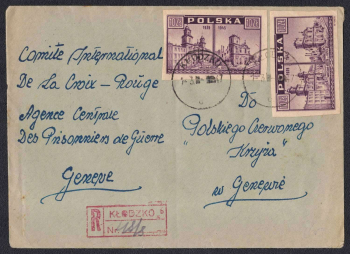 POLSKA
POLSKA
KŁODZKO
Comité International
De La Croix-Rouge
Agence Centrale
Des Prisonniers de Guerre
Geneve
Do
"Polskiego Czerwonego
Krzyża"
w Genewie
R
KŁODZKO
Nr